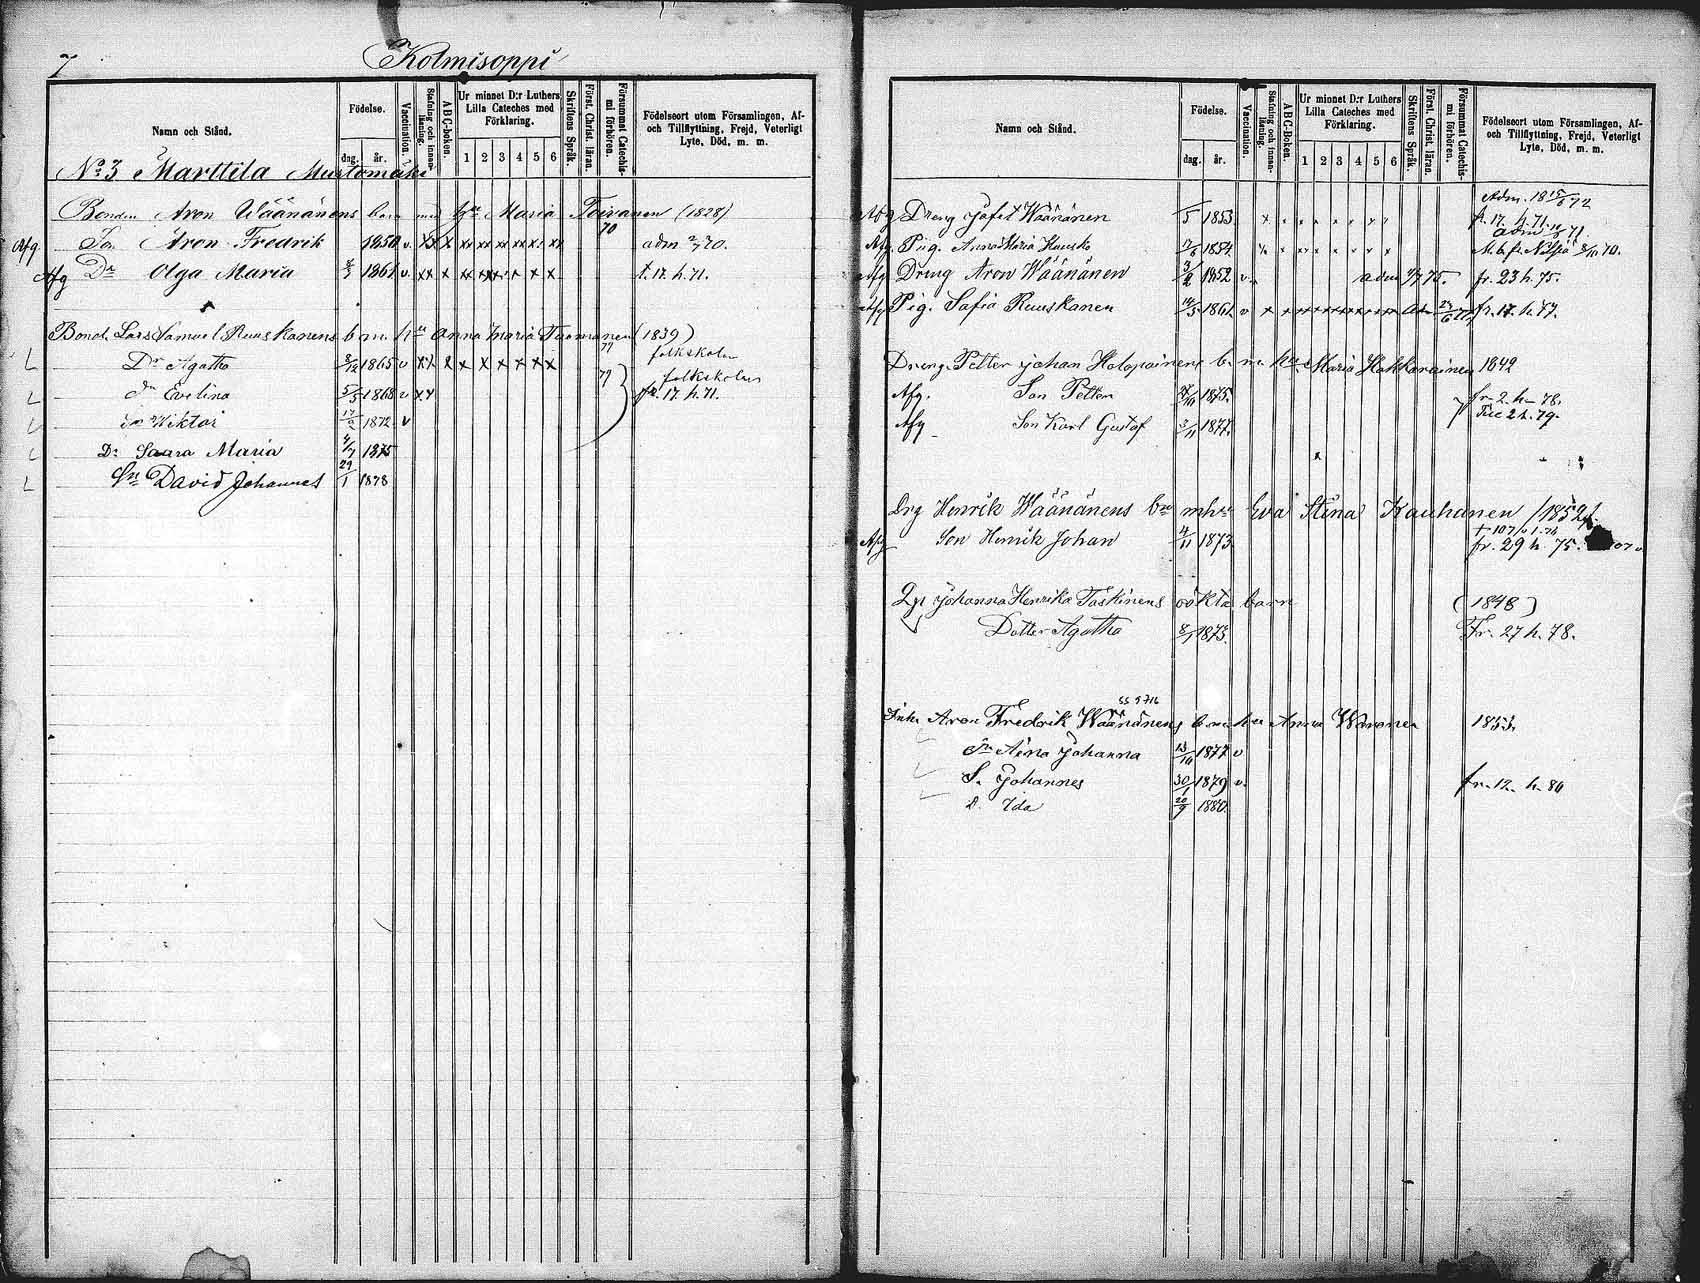 7
Kolmisoppi
Namn och Stånd.
Födelse.
dag. år.
Vaccination.
Stafning och innanläsning.
ABC-boken.
Ur minnet D:r Luthers Lilla Cateches med Förklaring.
1 2 3 4 5 6
Skriftens Språk.
Först. Christ. läran.
Försummat Catechismi förhören.
Födelseort utom Församlingen, Af- och Tillflyttning, Frejd, Veterligt Lyte, Död, m. m.
No 3 Marttila Mustomäki
Bonden Aron Wäänänens barn med hu Maria Toivanen (1828)
70
Afg Son Aron Fredrik 1850 v. xx x xx xx xx xx xx xx adm 2/7 70.
Afg Dr Olga Maria 1861 v. xx x t. 17. h. 71.
Bond. Lars Samuel Ruuskanens b m. hu Anna Maria Tuomanen (1839)
L Dr Agatha 8/12 1865 v xx x x x x x x x 77 folkskolan
L Dr Evelina 5/5 1868 v xx 79 folkskolan
fr. 17. h. 71.
L Wiktor 17/2 1872 v
L Dr Saara Maria 4/7 1875
L Sn David Johannes 29/1 1878
Namn och Stånd.
Födelse.
dag. år.
Vaccination.
Stafning och innanläsning.
ABC-Boken.
Ur minnet D:r Luthers Lilla Cateches med Förklaring.
1 2 3 4 5 6
Skriftens Språk.
Först Christ. läran.
Försummat Catechismi förhören.
Födelseort utom Församlingen, Af- och Tillflyttning, Frejd, Veterligt Lyte, Död, m. m.
Adm. 18 15/6 72
Afg Dreng Jafet Wäänänen /5 1853 x x x x x x x f. 17. h. 71.
Afg. Pig. Anna Maria Kuusko 1854. Nilsiä 70.
Afg Dreng Aron Wäänänen 3/2 1852 v. adm 75. fr. 23 h. 75.
Afg Pig. Safia Ruuskanen 1861. v fr. 17. h. 77.
Dreng Petter Johan Holopainens b. m. hu Maria Hakkarainen 1842
Afg. Son Petter 1875. fr. 2. h. 78.
Afg Son Karl Gustaf 3/11 1877. 2 h. 79.
Drg Henrik Wäänänens bn m hu Eva Stina Kauhanen /1852/.
Afg Son Henrik Johan 4/11 1873. fr. 29 h. 75.
Johanna Henrika Taskinens oökta barn (1848)
Dotter Agatha 8/1 1873. Fr. 27 h. 78.
Aron Fredrik Wäänänens b. m. hu Anna Waronen 1853.
Aina Johanna 13/10 1877 v
S. Johannes 30/1 1879 v. fr. 12. h. 80
D. Ida 20/9 1880.